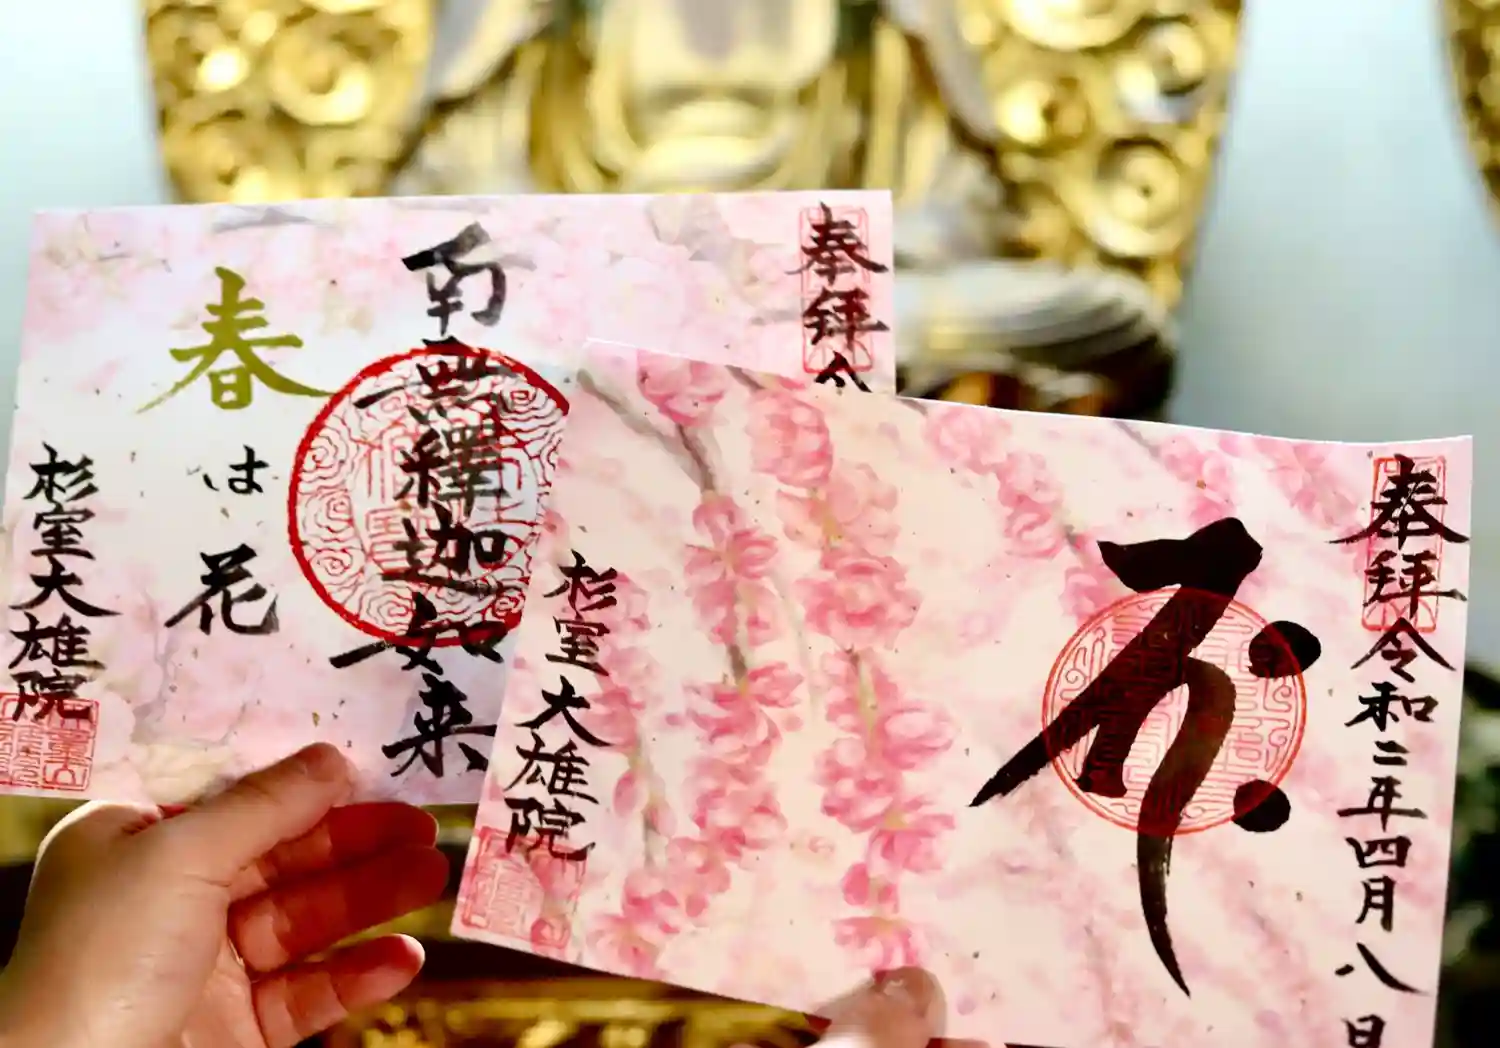 奉拝令
南無釋迦如来
春は花
杉室大雄院
奉拝令和二年四月八日
杉室大雄院